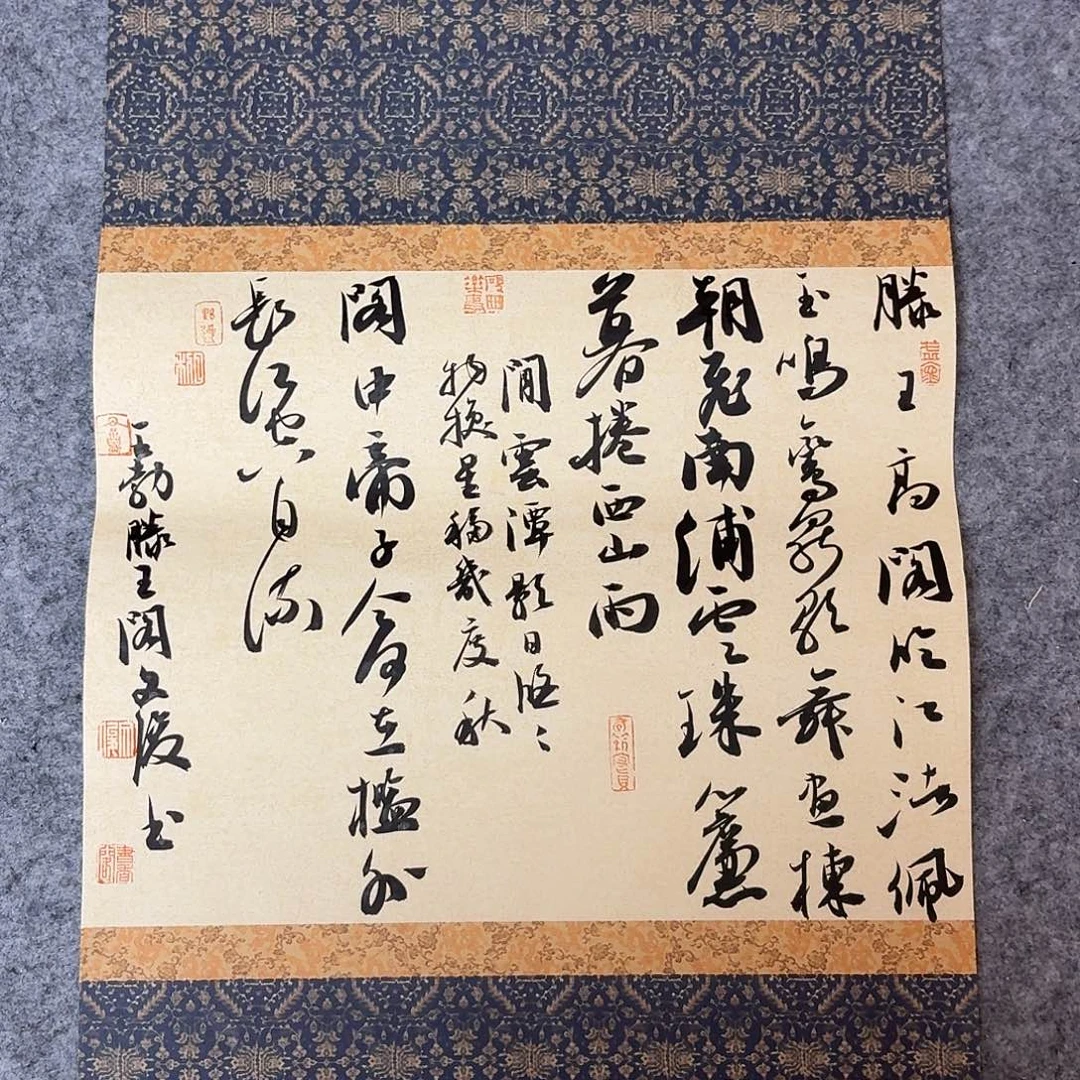 滕王高閣臨江渚佩
玉鳴鸞罷歌舞畫棟
朝飛南浦雲珠簾
暮捲西山雨
閒雲潭影日悠〻
物換星移幾度秋
閣中帝子今何在檻外
長江空自流
王勃滕王閣文書